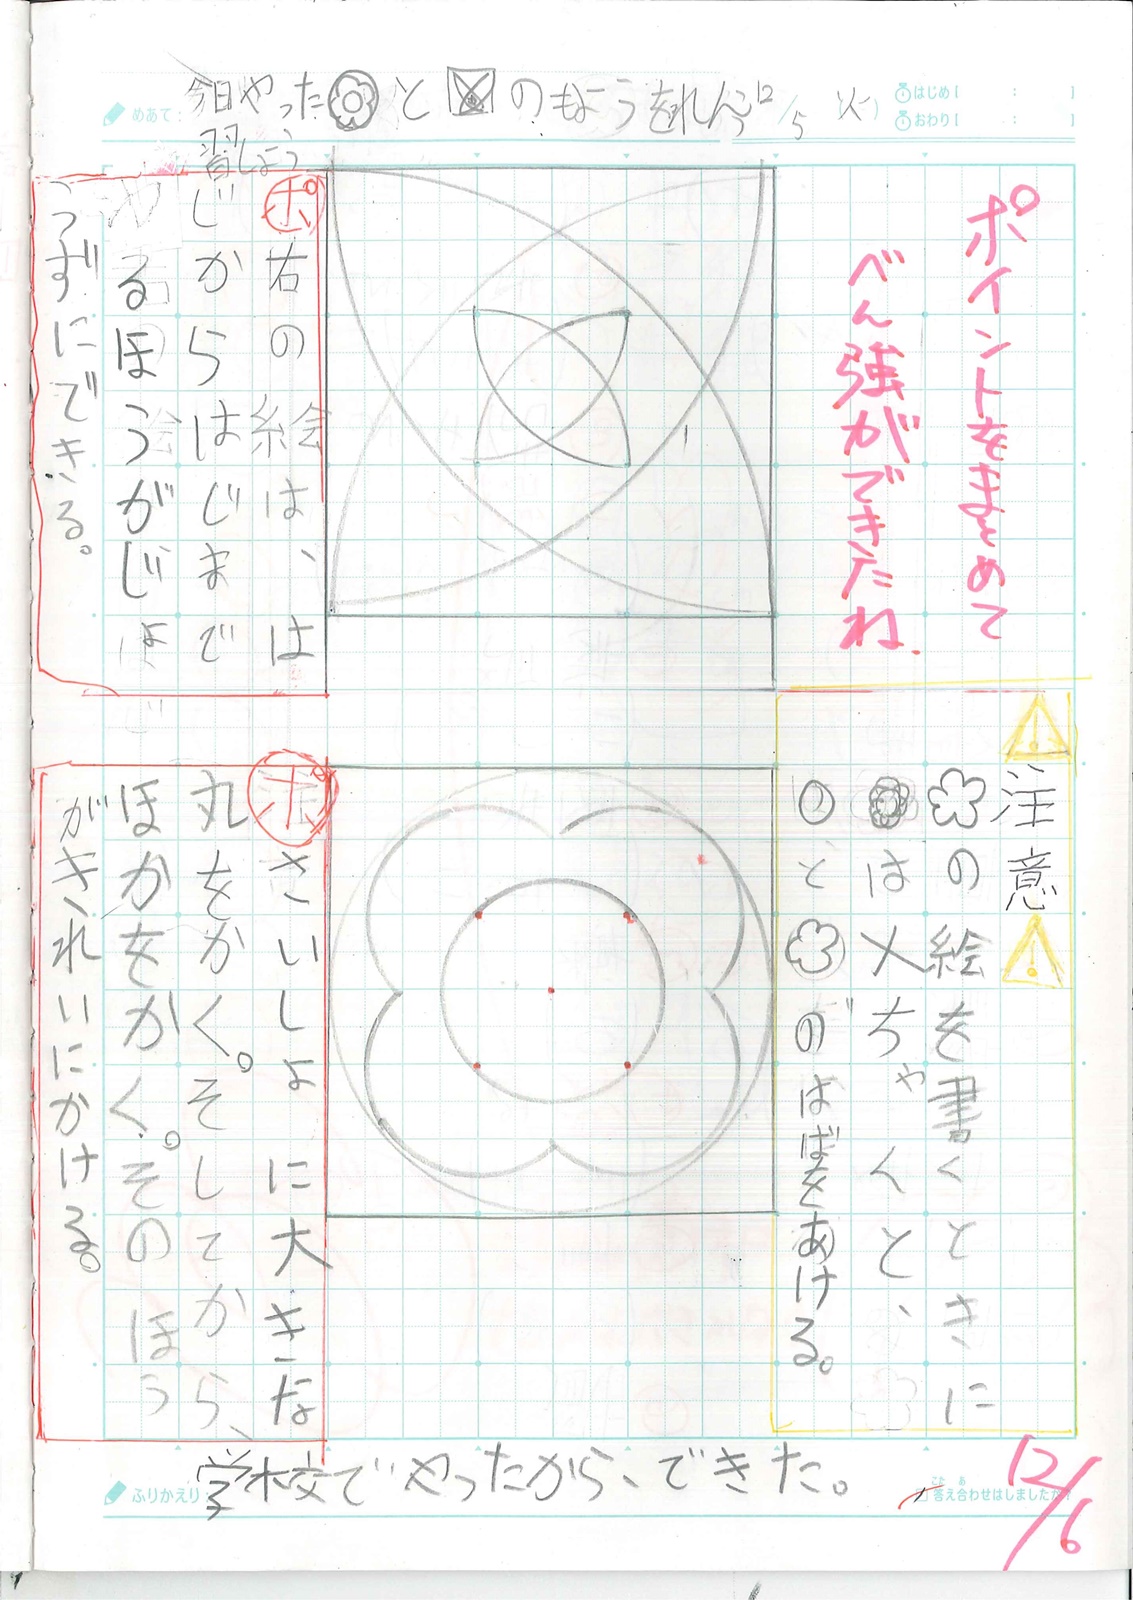 めあて:
今日やったとのもようをれん
習しよう
12/5(火)
はじめ[ : ]
おわり[ : ]
ポイントをまとめて
べん強ができたね.
ポ右の絵は、は
じからはじまで
るほうがじょ
うずにできる。
注意
の絵を書くときに
はメちゃくんと、
とのはばをあける。
ポさいしょに大きな
丸をかく。そしてから、
ほかをかく。そのほう
がきれいにかける。
ふりかえり:
学校でやったから、できた。
答え合わせはしましたか?
こた あ
12/6